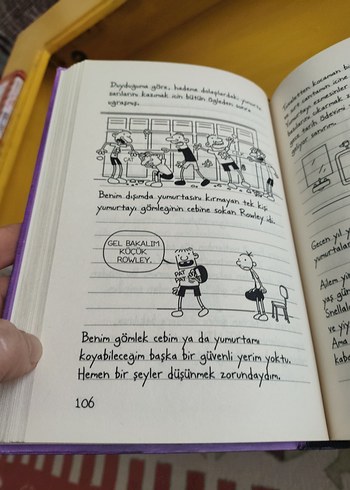 Duyduğuma göre, hademe dolaplardaki yumurta
sarılarını kazımak için bütün öğleden sonra
uğraşmış.
Benim dışımda yumurtasını kırmayan tek kişi,
yumurtayı gömleğinin cebine sokan Rowley'di.
GEL BAKALIM
KÜÇÜK
ROWLEY.
PAT
PAT
Benim gömlek cebim ya da yumurtamı
koyabileceğim başka bir güvenli yerim yoktu.
Hemen bir şeyler düşünmek zorundaydım.
106
kocaman bir
içine
Geçen yıl y
yumurtalar
Ailem
yaş gün
ve
Ama
kabe